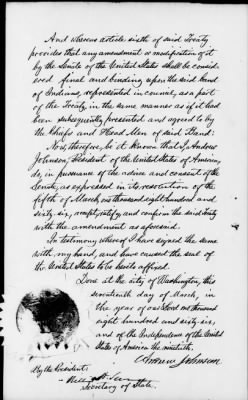 And whereas article sixth of said Treaty
provides that any amendment or modification of it
by the Senate of the United States shall be consid-
ered final and binding upon the said band
of Indians, represented in council, as a part
of the Treaty, in the same manner as if it had
been subsequently presented and agreed to by
the Chiefs and Head Men of said Band:
Now, therefore, be it known that I, Andrew
Johnson, President of the United States of America,
do, in pursuance of the advice and consent of the
Senate, as expressed in its resolution of the
fifth of March, one thousand eight hundred and
sixty-six, accept, ratify, and confirm the said treaty
with the amendment as aforesaid.
In testimony whereof I have signed the same
with my hand, and have caused the seal of
the United States to be hereto affixed.
Done at the city of Washington, this
seventeenth day of March, in
the year of our Lord one thousand
eight hundred and sixty-six,
and of the Independence of the United
States of America the ninetieth.
Andrew Johnson
By the President:
Secretary of State.